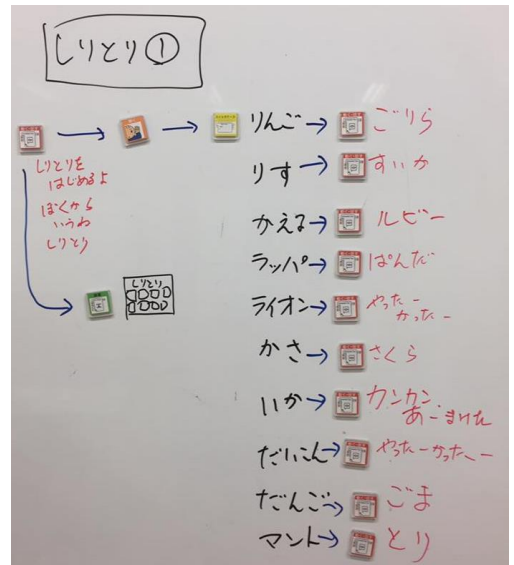 しりとり①
しりとりを
はじめるよ
ぼくから
いうね
しりとり
しりとり
りんご→ ごりら
りす→ すいか
かえる→ ルビー
ラッパ→ ぱんだ
ライオン→ やったー
かったー
かさ→ さくら
いか→ カンカン
あーまけた
だいこん→ やったーかったー
だんご→ ごま
マント→ とり